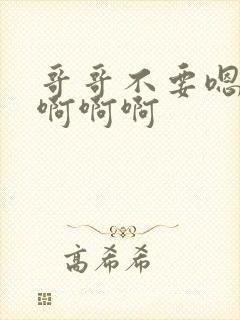 哥哥不要嗯
啊啊啊
高希希